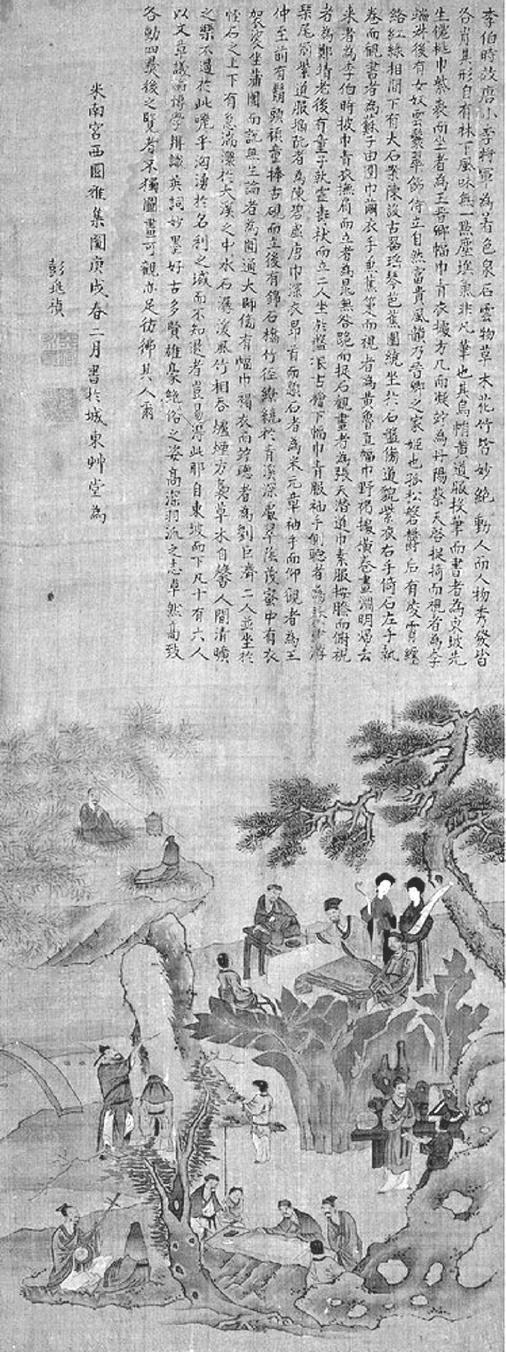 李伯時效唐小李將軍為著色泉石雲物草木花竹皆妙絕動人而人物秀發皆
各肖其形自有林下風味無一點塵埃氣非凡筆也其烏帽黃道服投筆而書者為東坡先
生僊桃巾紫裘而坐者為王晉卿幅巾青衣據方几而凝竚為丹陽蔡天啓捉椅而視者為李
端叔後有女奴雲鬟翠飾侍立自然富貴風韻乃晉卿之家姬也孤松磐鬱后有凌霄纏
絡紅綠相間下有大石案陳設古器瑤琴芭蕉圍繞坐於石盤傍道帽紫衣右手倚石左手執
卷而觀書者為蘇子由團巾繭衣手魚蕉箑而視者為黃魯直幅巾野褐據橫卷畫淵明歸去
來者為李伯時披巾青衣撫肩而立者為晁無咎跪而捉石觀畫者為張文潛道巾素服按膝而俯視
者為鄭靖老後有童子執靈壽杖而立二人坐於盤根古檜下幅巾青服袖手側聽者為秦少游
琴尾冠紫道服摘阮者為陳碧虛唐巾深衣昂首而題石者為米元章袖手而仰觀者為王
仲至前有鬅頭頑童捧古硯而立後有錦石橋竹徑繚繞於青溪深處翠陰茂蜜中有衣
袈裟坐蒲團而說無生論者為圓通大師傍有幅巾褐衣而諦聽者為劉巨濟二人並坐於
怪石之上下有急湍潨於大溪之中水石潺湲風竹相吞爐煙方裊草木自馨人間清曠
之樂不過於此嗟乎洶湧於名利之域而不知退者豈易得此耶自東坡而下凡十有六人
以文章議論博學辨識英詞妙墨好古多賢雄豪絕俗之姿高深羽流之志卓然高致
名動四夷後之覽者不獨圖畫可觀亦足彷彿其人爾
米南宮西園雅集圖庚戌春二月書於城東艸堂為
彭進禎